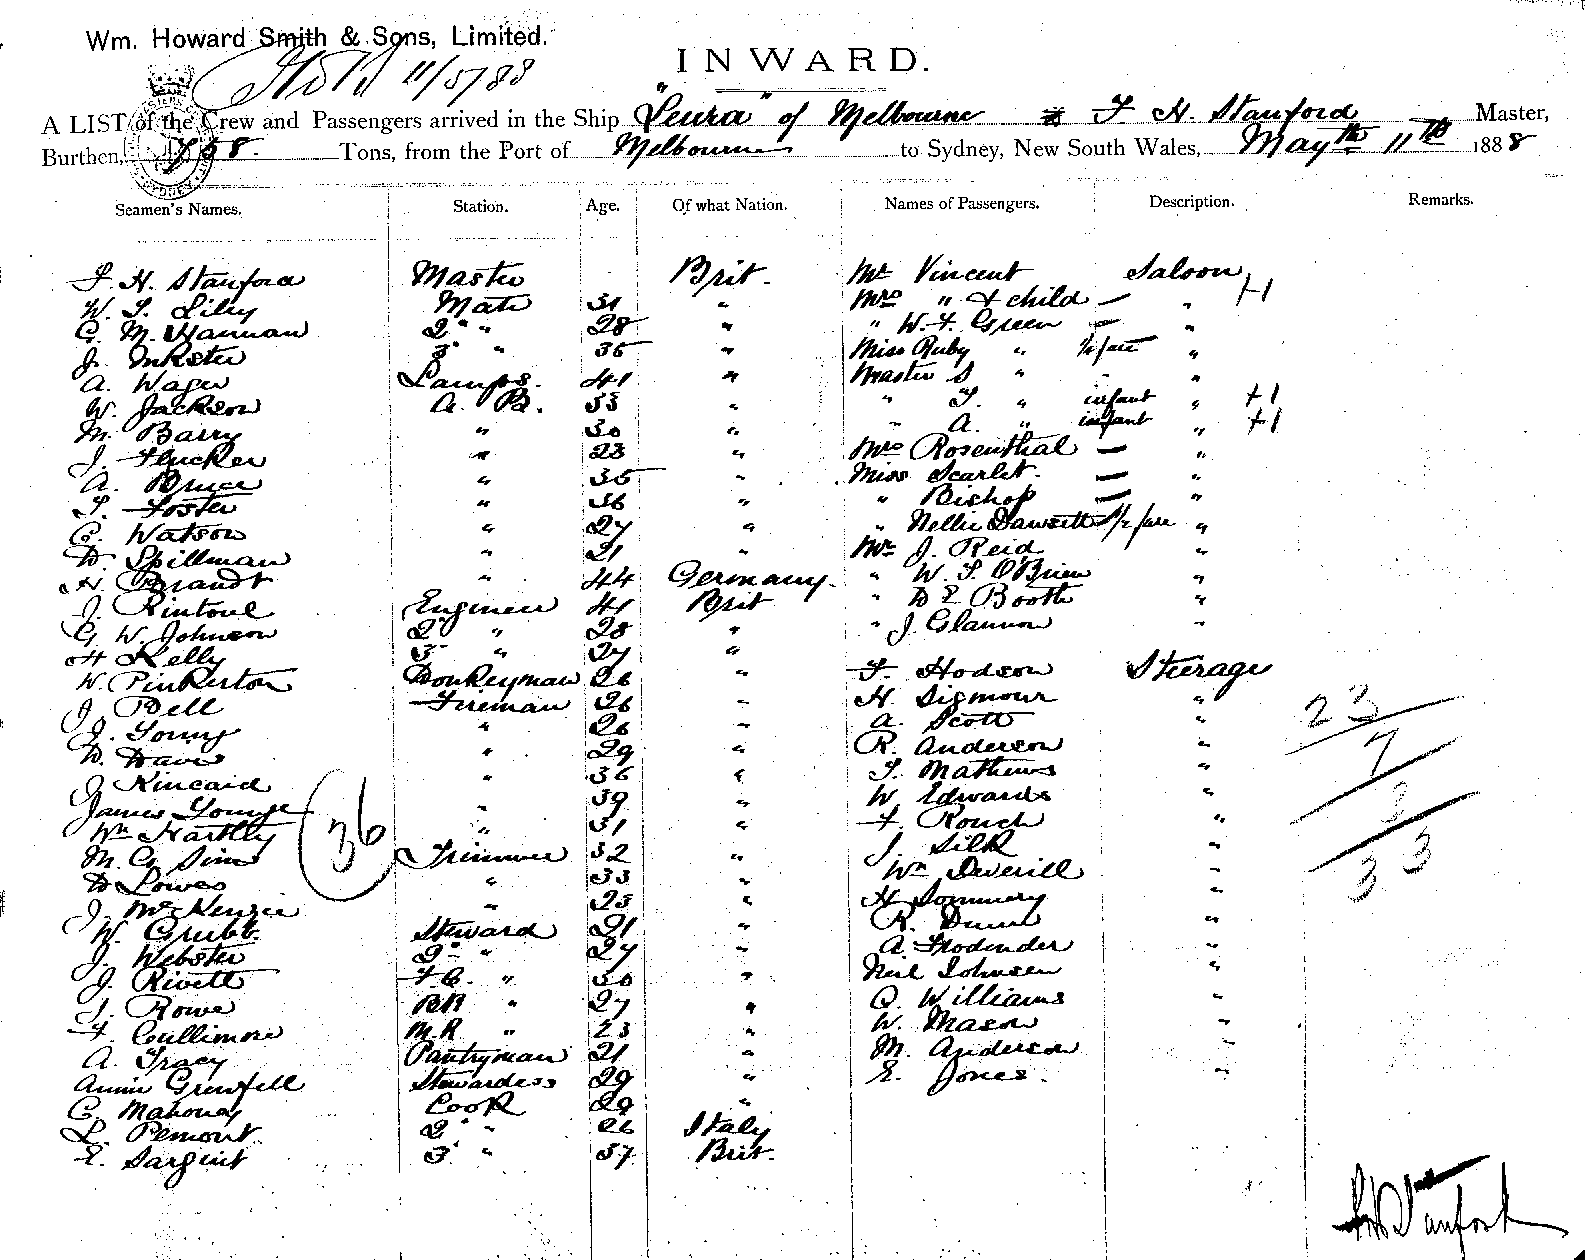 Wm. Howard Smith & Sons, Limited.
11/5/88
INWARD.
A LIST of the Crew and Passengers arrived in the Ship "Leura" of Melbourne F H. Stanford Master,
Burthen, Tons, from the Port of Melbourne to Sydney, New South Wales, May 11th 1888
Seamen's Names. Station. Age. Of what Nation. Names of Passengers. Description. Remarks.
F. H. Stanford Master Brit. Mr Vincent Saloon +1
W. T. Lilly Mate 31 " Mrs " & child — "
G. M. Hannan 2" " 28 " " W. F. Green — "
J. Inkster 3" " 35 " Miss Ruby " 1/2 fare "
A. Wager Lamps. 41 " Master S " "
W. Jackson A. B. 33 " " T. " infant " +1
M. Barry " 30 " " A. " infant " +1
J. Flucker " 23 " Mrs Rosenthal — "
A. Bruce " 35 " Miss Scarlet. — "
T. Foster " 36 " " Bishop — "
G. Watson " 27 " " Nellie 1/2 fare "
D. Spillman " 21 " Mr J. Reid "
H. Brandt " 44 Germany. " W. T. O'Brien "
J. Rintoul Engineer 41 Brit " D E Booth "
G W. Johnson 2" " 28 " " J. Glannon "
H Kelly 3" " 27 "
W. Pinkerton Donkeyman 26 " F. Hodson Steerage
J. Bell Fireman 26 " H. Sigmour "
J. Young " 26 " A. Scott "
D. Davis " 29 " R. Anderson "
J. Kincaid " 36 " T. Mathews "
James Younge " 39 " W. Edwards "
Wm Hartley " 31 " F. Rouch "
M. G. Sim Trimmer 32 " J. Silk "
D Lowes " 33 " Wm Deverill "
J. McKenzie " 23 " H
W. Grubb. Steward 21 " R. Dunn "
J. Webster 2" " 27 " A. "
J. Rivett F.C. " 30 " Neil Johnsen "
J. Rowe BR " 27 " Q. Williams "
F. Cullimore M.R " 23 " W. Mason "
A. Tracy Pantryman 21 " M. Anderson "
Annie Grenfell Stewardess 29 " E. Jones. "
C. Mahoney Cook 29 "
L. Pemont. 2" " 26 Italy
E. Sargint 3" " 37 Brit.
36
23
7
3
33